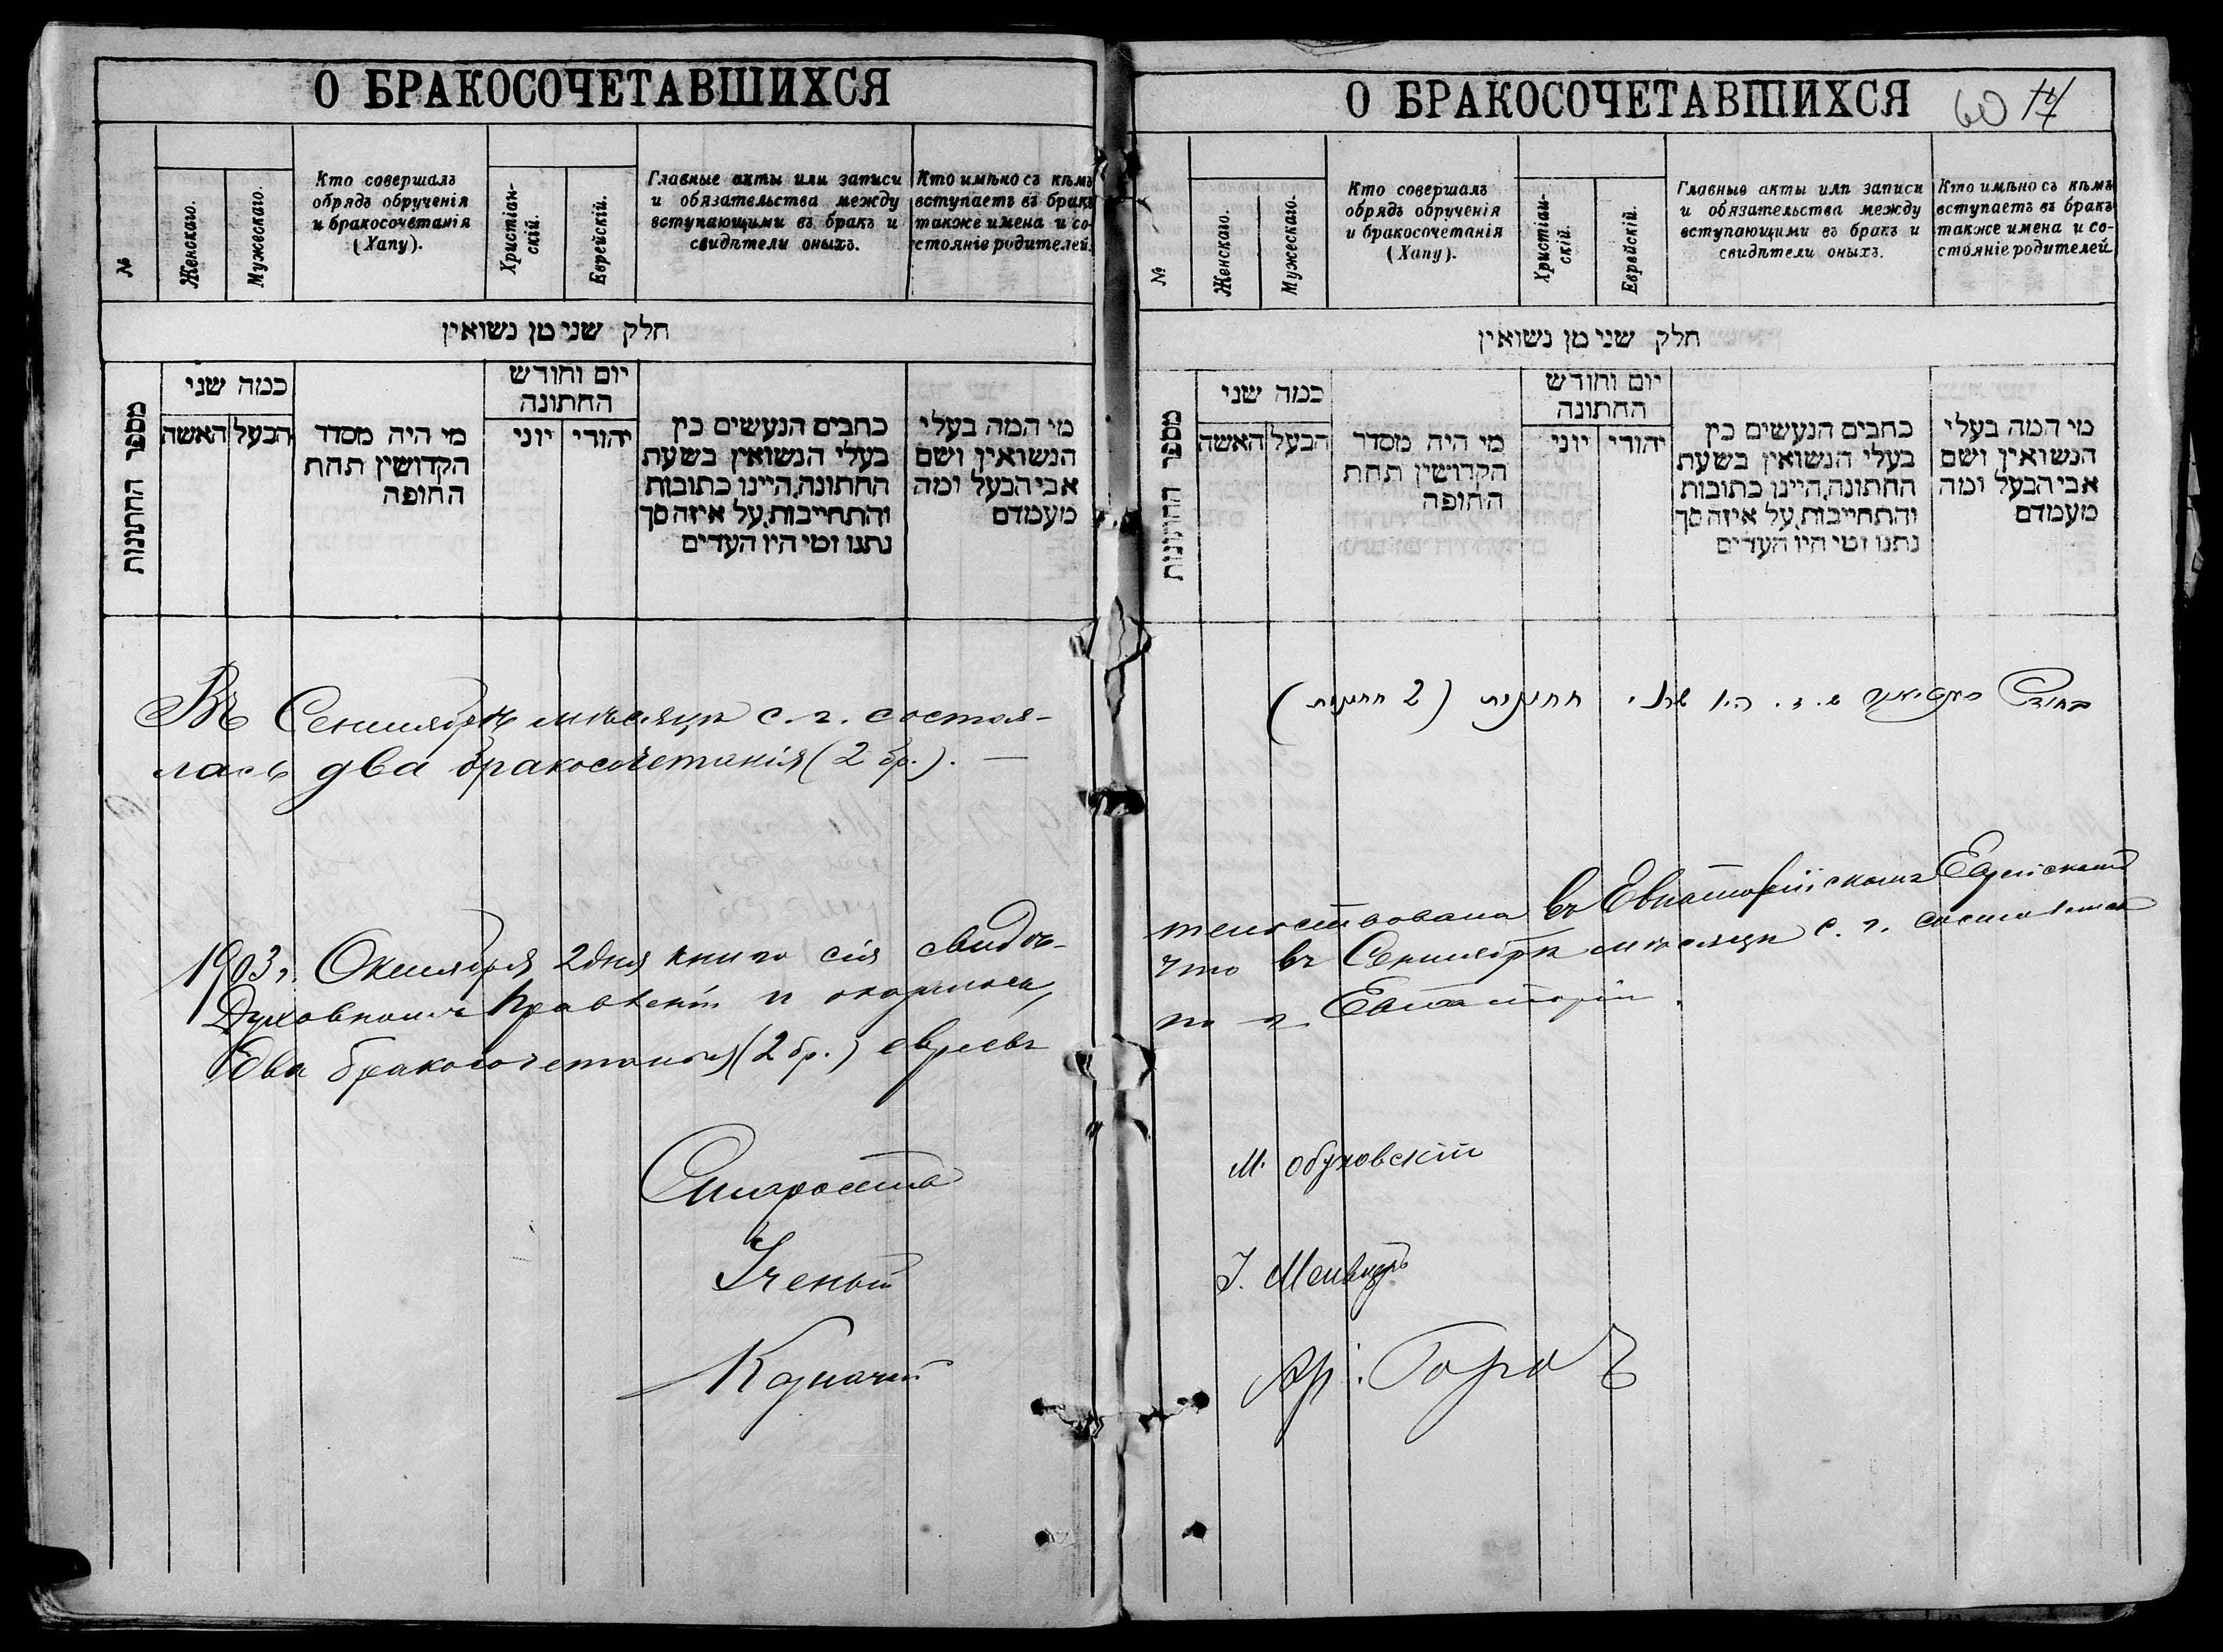 О БРАКОСОЧЕТАВШИХСЯ
№
Женскаго.
Мужескаго.
Кто совершалъ
обрядъ обрученія
и бракосочетанія
(Хапу).
Христіан-
скій.
Еврейскій.
Главные акты или записи
и обязательства между
вступающими въ бракъ и
свидѣтели оныхъ.
Кто имѣно съ кѣмъ
вступаетъ въ бракъ
также имена и со-
стояніе родителей.
חלק שני מן נשואין
מספר החתונות
כמה שני
הבעל האשה
מי היה מסדר
הקדושין תחת
החופה
יום וחודש
החתונה
יהודי יוני
כתבים הנעשים בין
בעלי הנשואין בשעת
החתונה, היינו כתובות
והתחייבות, על איזה סך
נתנו ומי היו העדים
מי המה בעלי
הנשואין ושם
אבי הבעל ומה
מעמדם
Въ Сентябрѣ мѣсяцѣ с. г. состоя-
лась два бракосочетанія (2 бр.). —
1903 г. Октября 2 дня книга сія свидѣ-
Духовномъ Правленіи и оказалось,
Два бракосочетанія (2 бр.) евреевъ
Староста
Ученый
Казначей
О БРАКОСОЧЕТАВШИХСЯ
60 14
№
Женскаго.
Мужескаго.
Кто совершалъ
обрядъ обрученія
и бракосочетанія
(Хапу).
Христіан-
скій.
Еврейскій.
Главные акты или записи
и обязательства между
вступающими въ бракъ и
свидѣтели оныхъ.
Кто имѣно съ кѣмъ
вступаетъ въ бракъ
также имена и со-
стояніе родителей
חלק שני מן נשואין
מספר החתונות
כמה שני
הבעל האשה
מי היה מסדר
הקדושין תחת
החופה
יום וחודש
החתונה
יהודי יוני
כתבים הנעשים בין
בעלי הנשואין בשעת
החתונה, היינו כתובות
והתחייבות, על איזה סך
נתנו ומי היו העדים
מי המה בעלי
הנשואין ושם
אבי הבעל ומה
מעמדם
בחודש היו שתי חתונות (2 חתונות)
тельствована въ Евпаторійскомъ Еврейскомъ
что въ Сентябрѣ мѣсяцѣ с. г. состоялись
по г. Евпаторіи.
М. Обуховскій